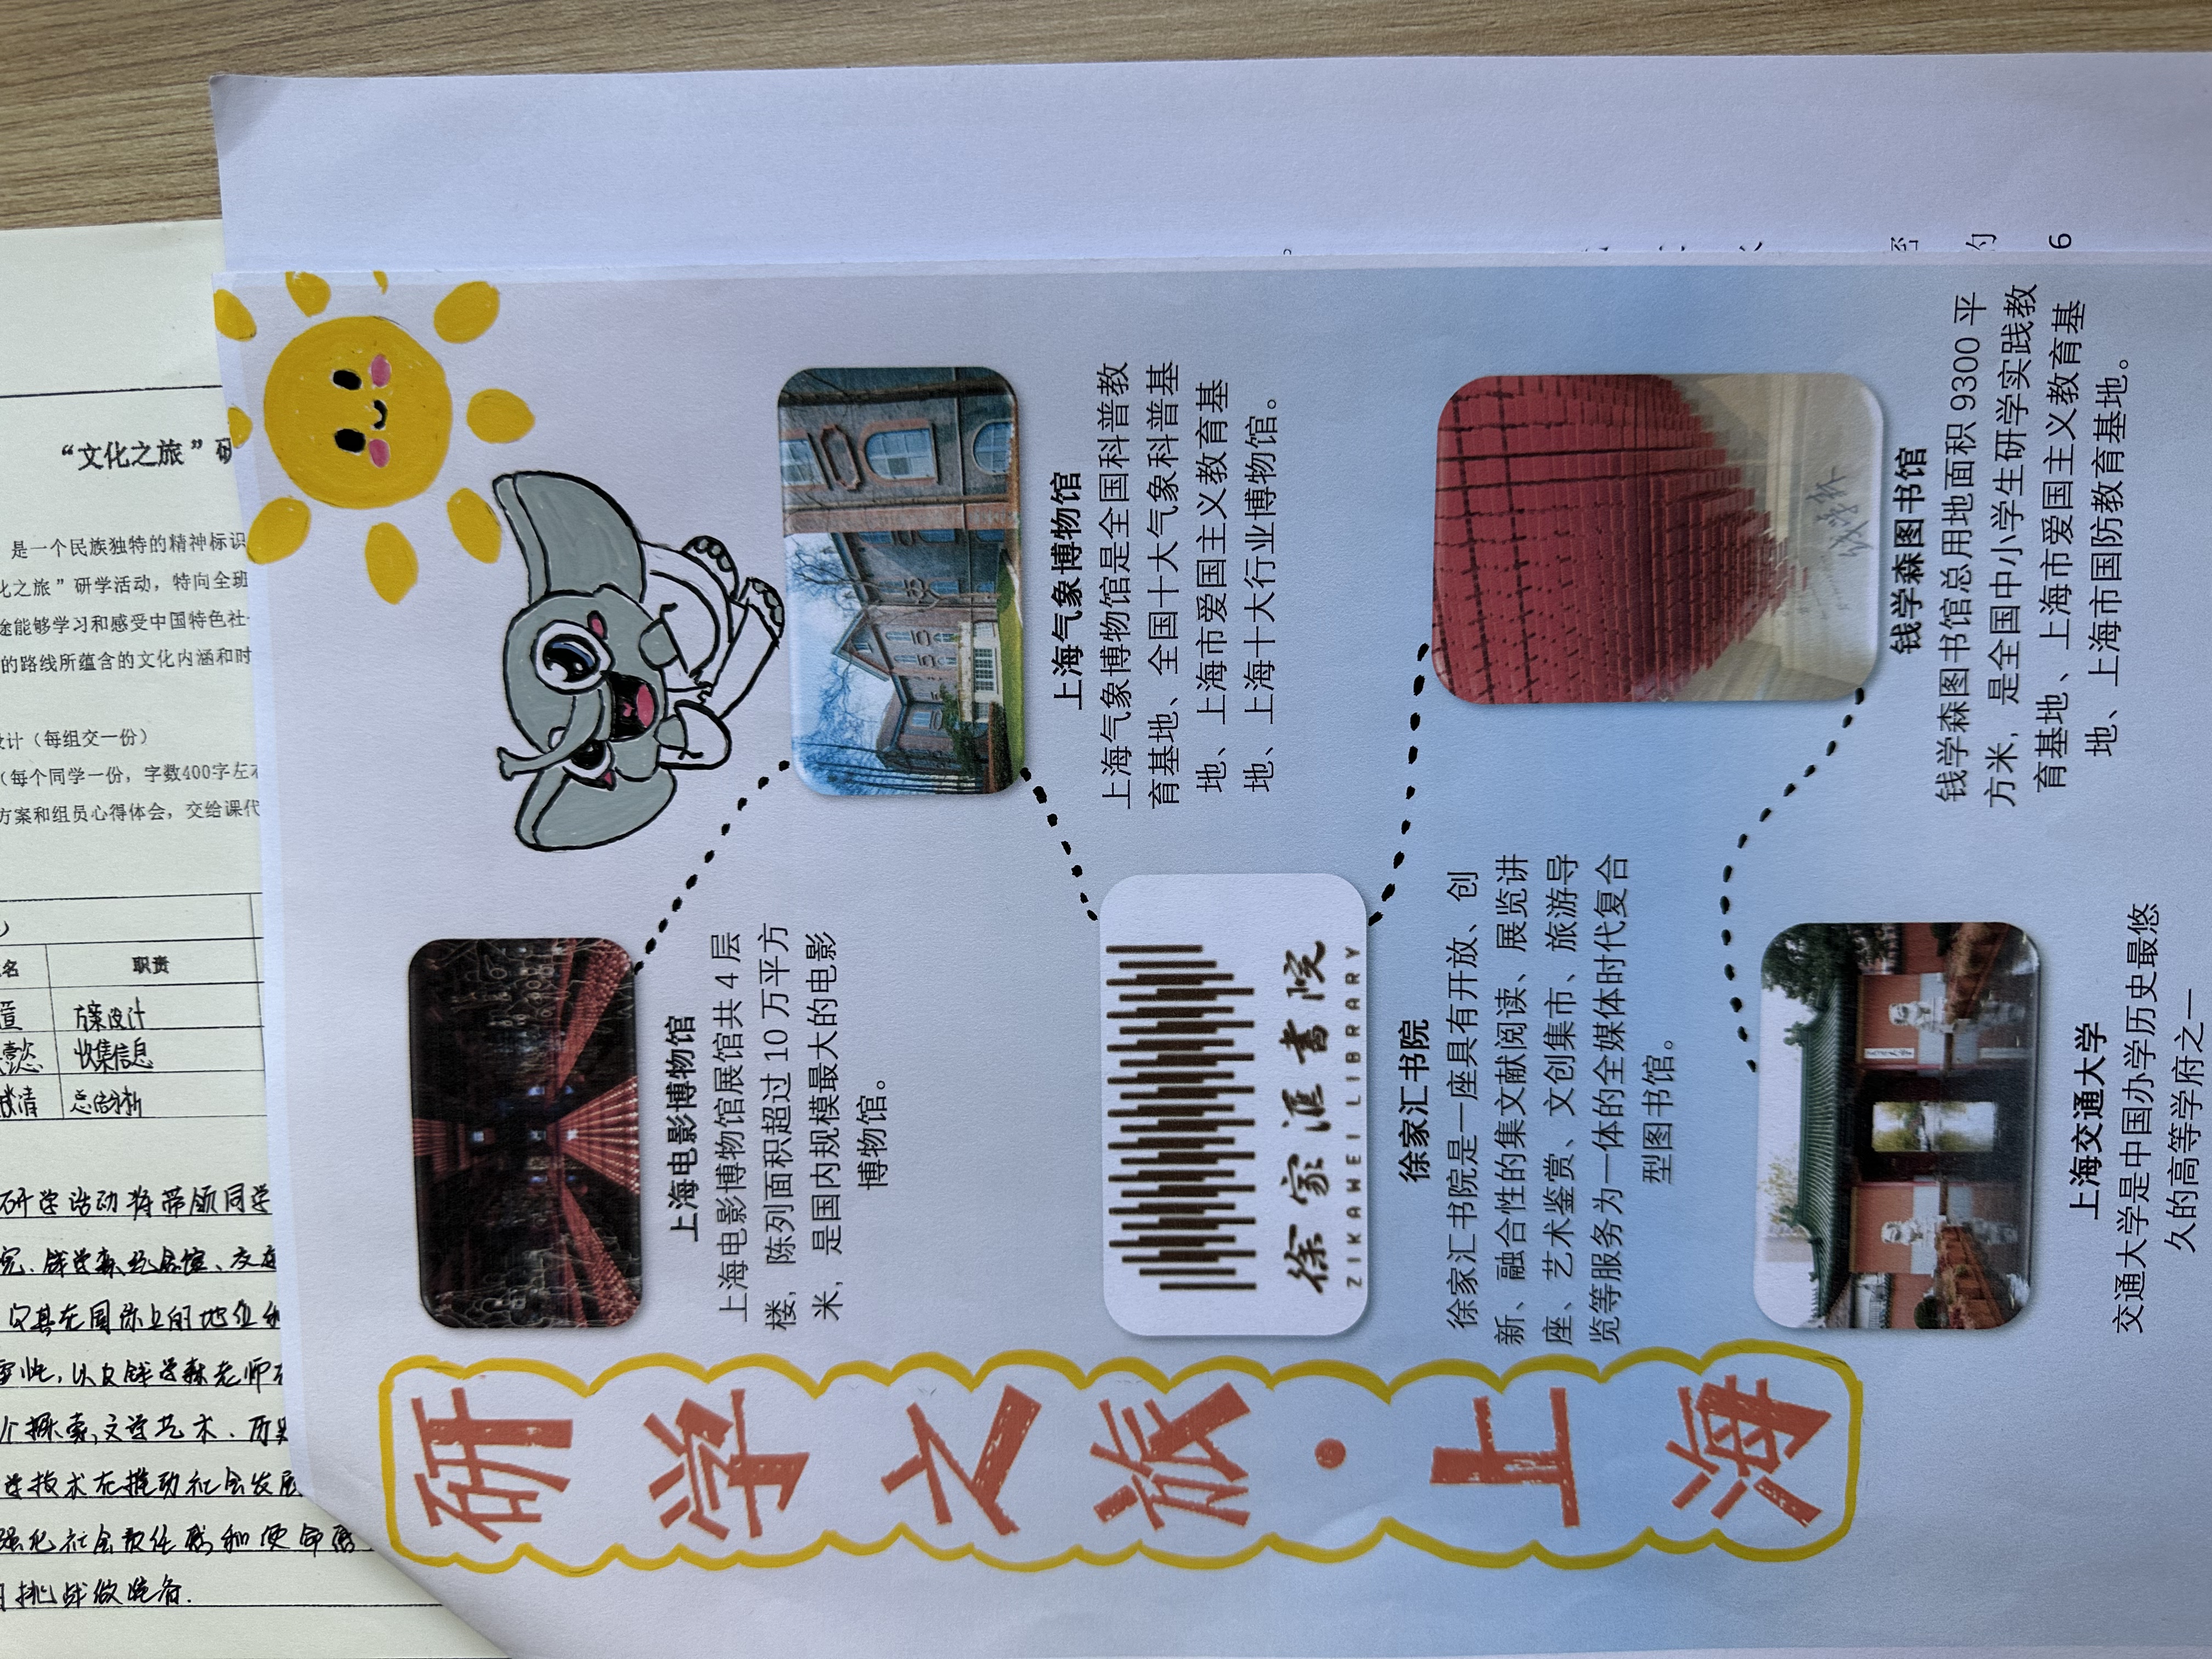 研学之旅·上海
上海电影博物馆
上海电影博物馆展馆共 4 层
楼，陈列面积超过 10 万平方
米，是国内规模最大的电影
博物馆。
上海气象博物馆
上海气象博物馆是全国科普教
育基地、全国十大气象科普基
地、上海市爱国主义教育基
地、上海十大行业博物馆。
徐家汇书院
ZIKAWEI LIBRARY
徐家汇书院
徐家汇书院是一座具有开放、创
新、融合性的集文献阅读、展览讲
座、艺术鉴赏、文创集市、旅游导
览等服务为一体的全媒体时代复合
型图书馆。
钱学森图书馆
钱学森图书馆总用地面积 9300 平
方米，是全国中小学生研学实践教
育基地、上海市爱国主义教育基
地、上海市国防教育基地。
上海交通大学
交通大学是中国办学历史最悠
久的高等学府之一
6
“文化之旅”研
是一个民族独特的精神标识
化之旅”研学活动，特向全班
途能够学习和感受中国特色社
的路线所蕴含的文化内涵和时
设计（每组交一份）
（每个同学一份，字数400字左
方案和组员心得体会，交给课代
名 职责
方案设计
收集信息
清 总结分析
研学活动将带领同学
钱学森纪念馆、交
其在国际上的地位
以及钱学森老师
个探索，文学艺术、历史
学技术在推动社会发展
强化社会责任感和使命感
挑战做准备.